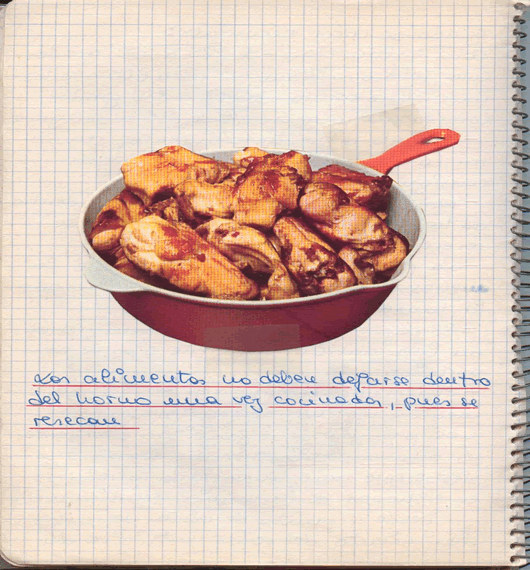 Los alimentos no deben dejarse dentro
del horno una vez cocinados, pues se
resecan